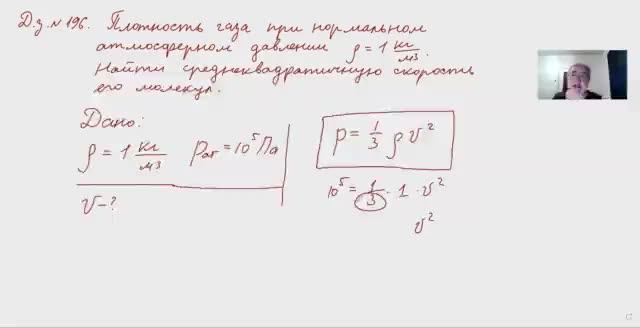 Д.з. №196. Плотность газа при нормальном
атмосферном давлении ρ = 1 кг/м3.
Найти среднеквадратичную скорость
его молекул.
Дано:
ρ = 1 кг/м3 pат = 10⁵ Па
v - ?
p = 1/3 ρ v²
10⁵ = 1/3 · 1 · v²
v²